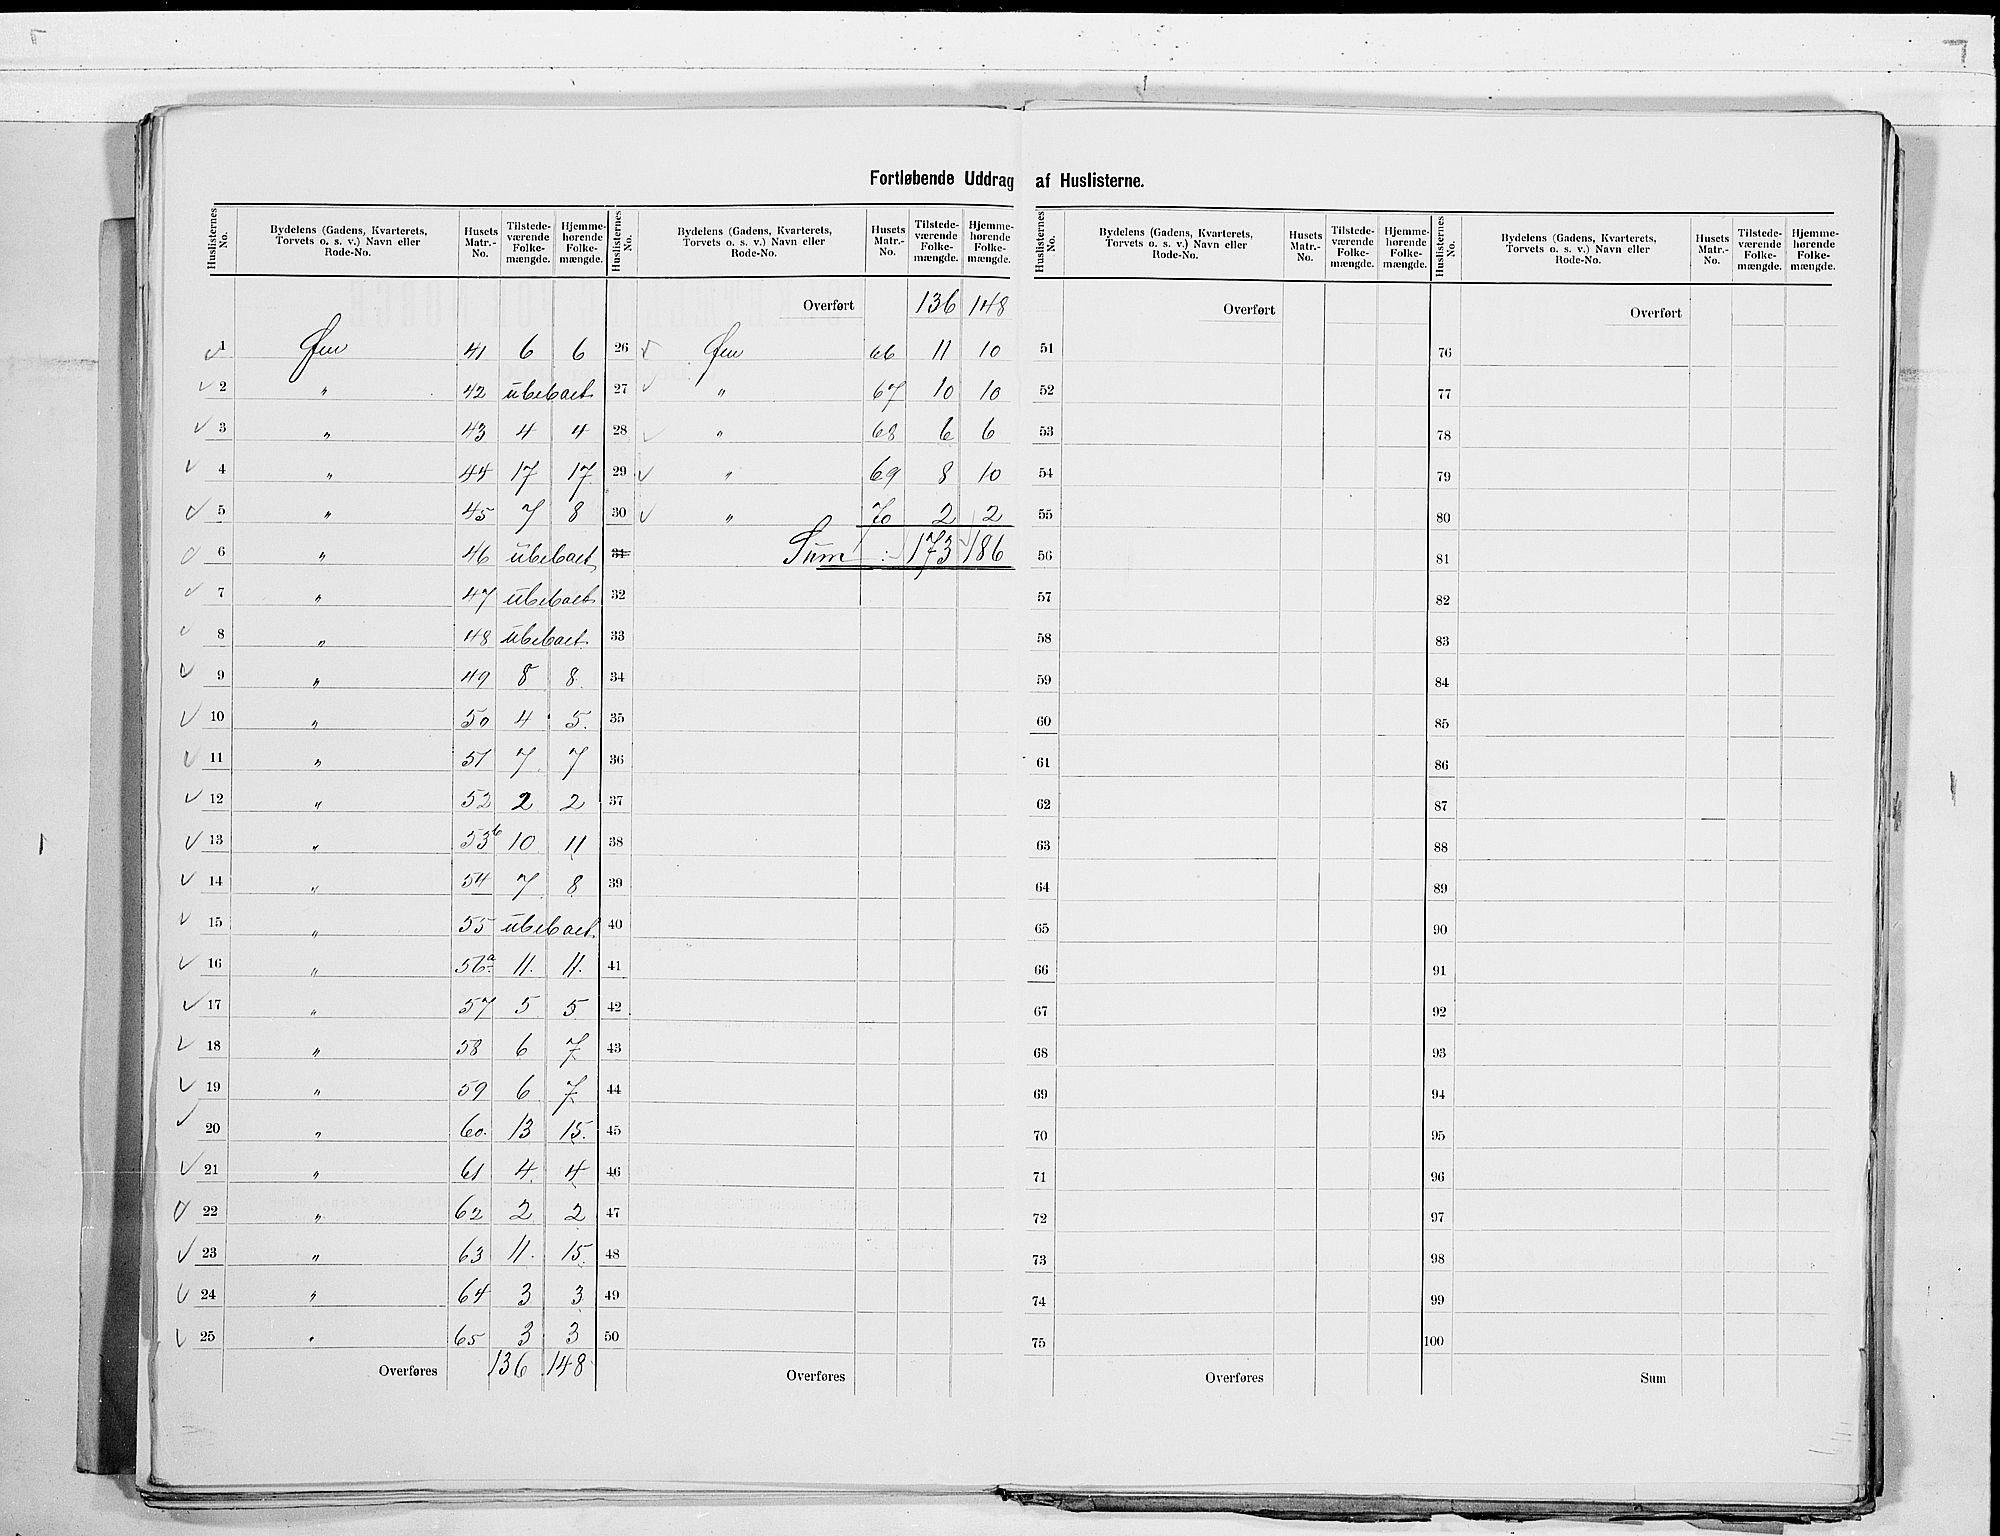 Fortløbende Uddrag af Huslisterne.
Huslisternes No. | Bydelens (Gadens, Kvarterets, Torvets o. s. v.) Navn eller Rode-No. | Husets Matr.-No. | Tilstede-værende Folke-mængde. | Hjemme-hørende Folke-mængde.
1 Øen 41 6 6
2 " 42 ubebaet
3 " 43 4 4
4 " 44 17 17
5 " 45 7 8
6 " 46 ubebaet
7 " 47 ubebaet
8 " 48 ubebaet
9 " 49 8 8
10 " 50 4 5
11 " 51 7 7
12 " 52 2 2
13 " 53b 10 11
14 " 54 7 8
15 " 55 ubebaet
16 " 56a 11 11
17 " 57 5 5
18 " 58 6 7
19 " 59 6 7
20 " 60 13 15
21 " 61 4 4
22 " 62 2 2
23 " 63 11 15
24 " 64 3 3
25 " 65 3 3
Overføres 136 148
Huslisternes No. | Bydelens (Gadens, Kvarterets, Torvets o. s. v.) Navn eller Rode-No. | Husets Matr.-No. | Tilstede-værende Folke-mængde. | Hjemme-hørende Folke-mængde.
Overført 136 148
26 Øen 66 11 10
27 " 67 10 10
28 " 68 6 6
29 " 69 8 10
30 " 70 2 2
31 Sum : 173 186
32
33
34
35
36
37
38
39
40
41
42
43
44
45
46
47
48
49
50
Overføres
Huslisternes No. | Bydelens (Gadens, Kvarterets, Torvets o. s. v.) Navn eller Rode-No. | Husets Matr.-No. | Tilstede-værende Folke-mængde. | Hjemme-hørende Folke-mængde.
Overført
51
52
53
54
55
56
57
58
59
60
61
62
63
64
65
66
67
68
69
70
71
72
73
74
75
Overføres
Huslisternes No. | Bydelens (Gadens, Kvarterets, Torvets o. s. v.) Navn eller Rode-No. | Husets Matr.-No. | Tilstede-værende Folke-mængde. | Hjemme-hørende Folke-mængde.
Overført
76
77
78
79
80
81
82
83
84
85
86
87
88
89
90
91
92
93
94
95
96
97
98
99
100
Sum